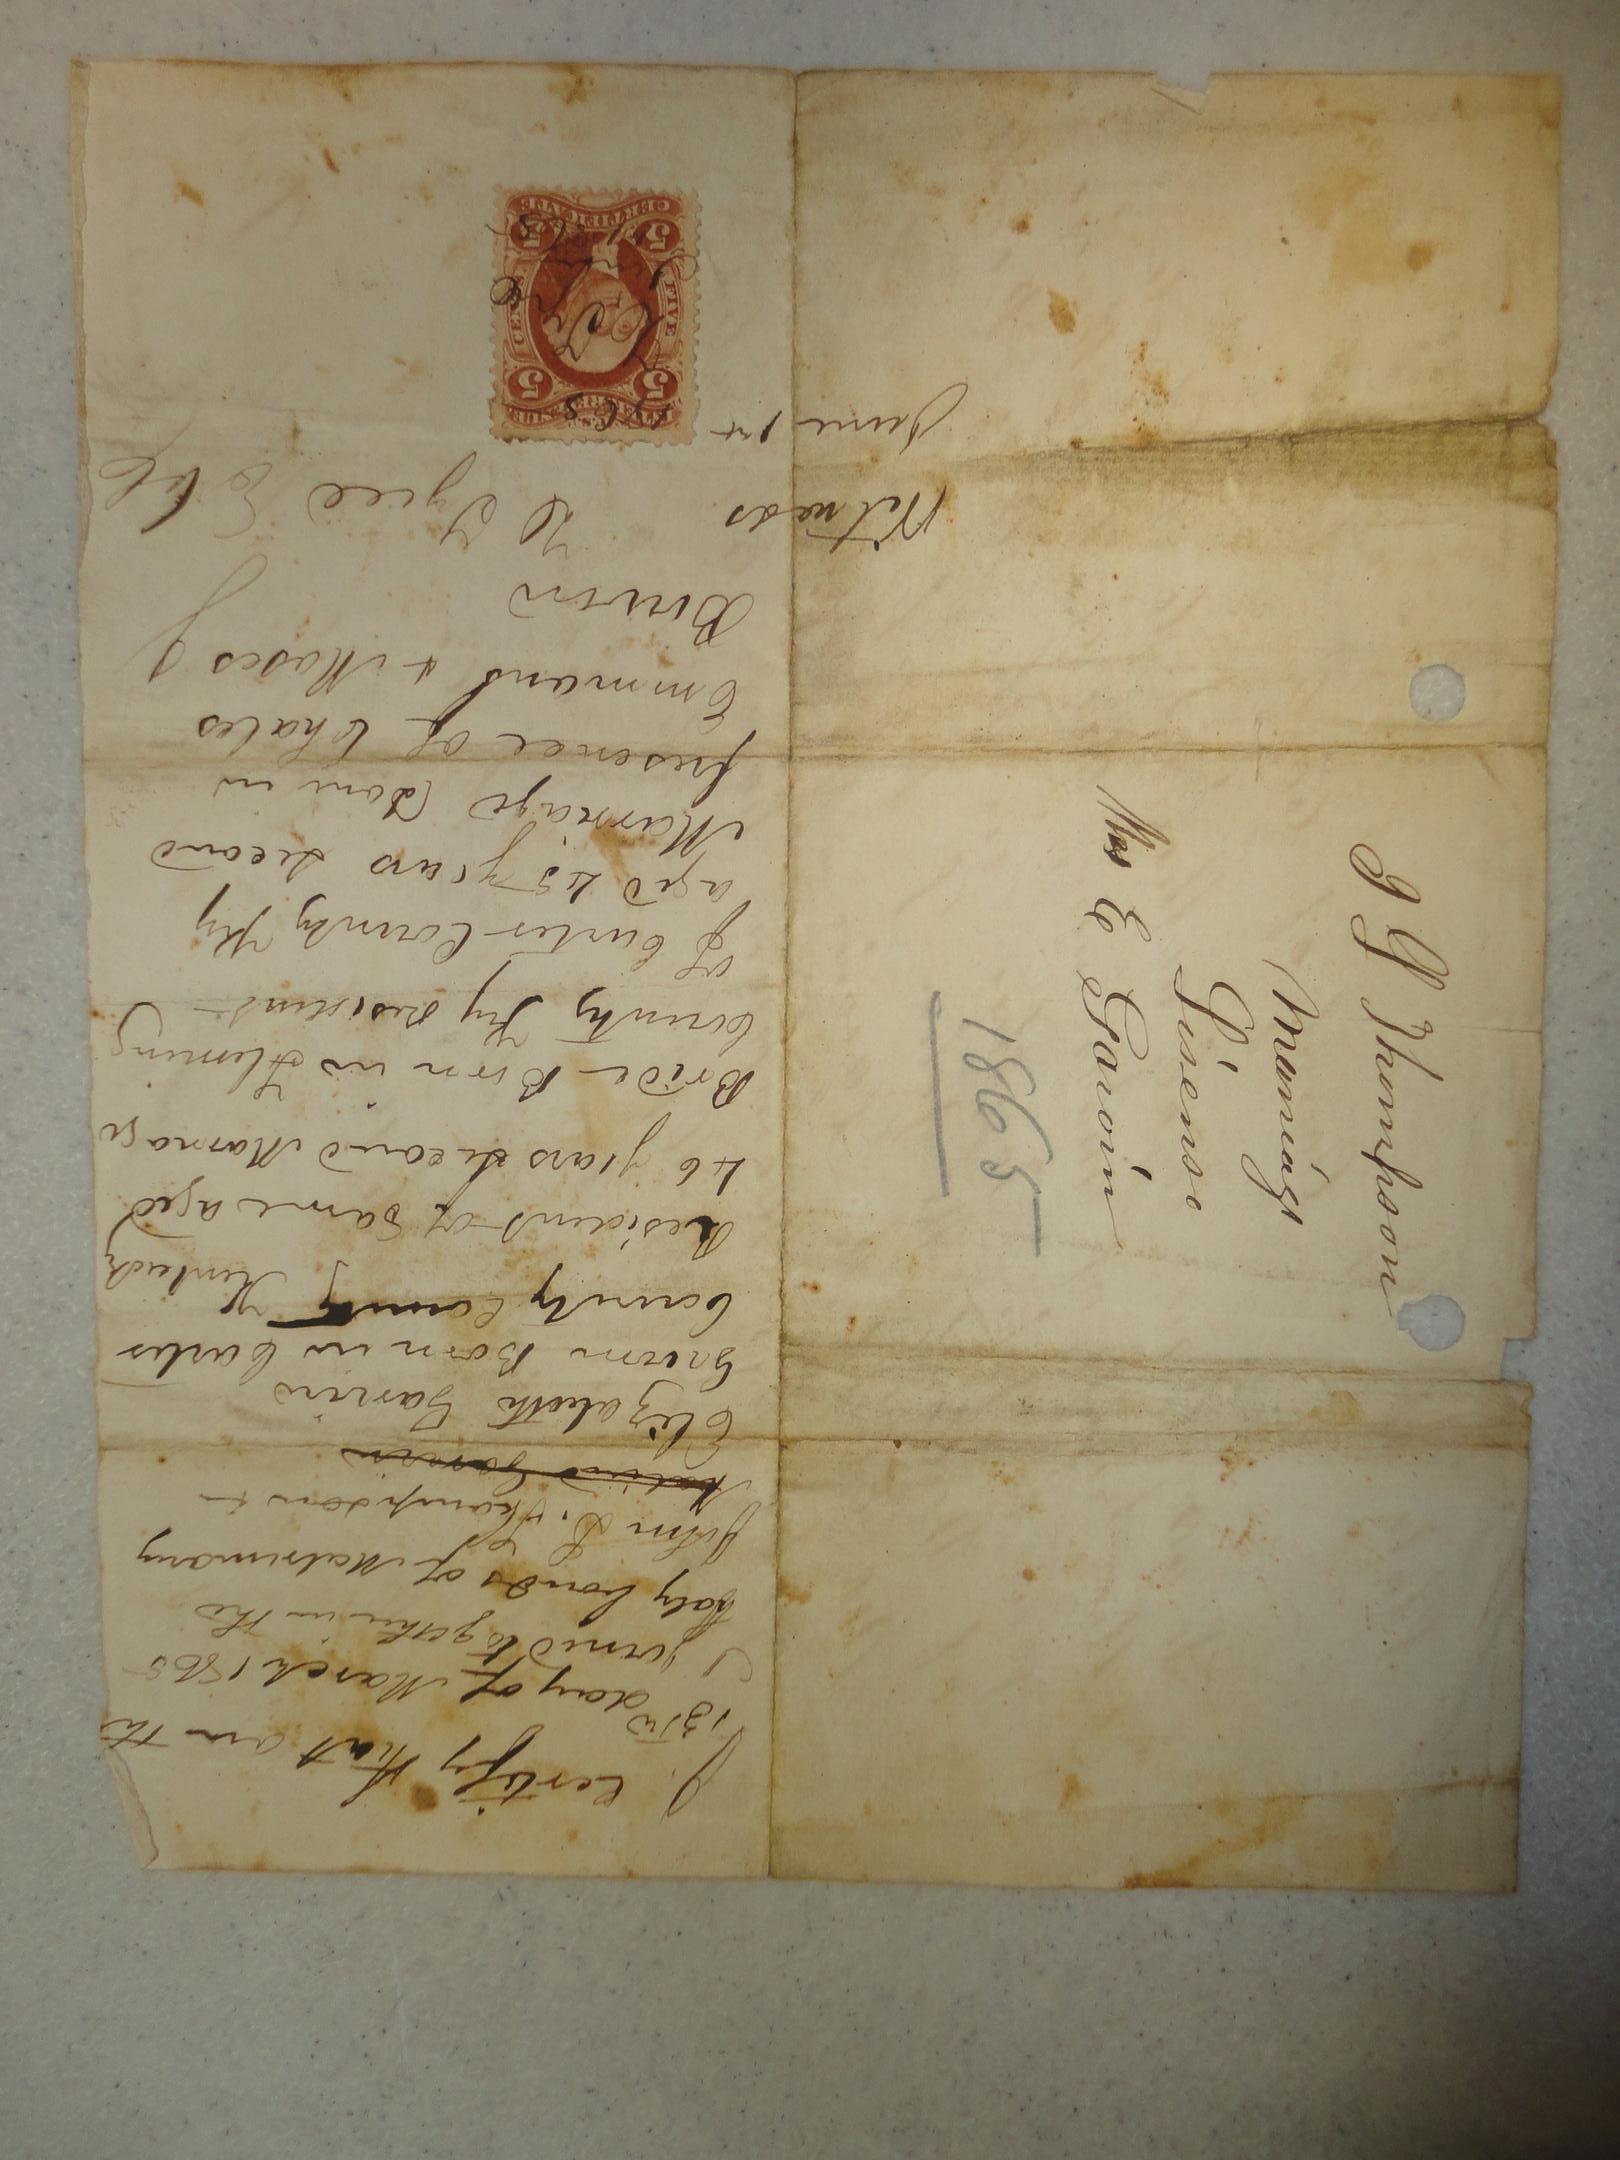 I certify that on the
13th day of March 1865
I joined together in the
holy bonds of Matrimony
John L. Thompson &
Garvin
Elizabeth Garvin
Groom Born in Carter
County County Kentucky
Resident of Same aged
46 years Second Marriage
Bride Born in Fleming
County Ky resident
of Carter County Ky
aged 45 years Second
Marriage Done in
presence of Chales
Emmans & Moses J
Witness
June 1st
1865
U.S. INTER. REVENUE
5 5
FIVE CENTS
5 5
CERTIFICATE
J L Thompson
Marriage
Lisense
Mrs E Garvin
1865